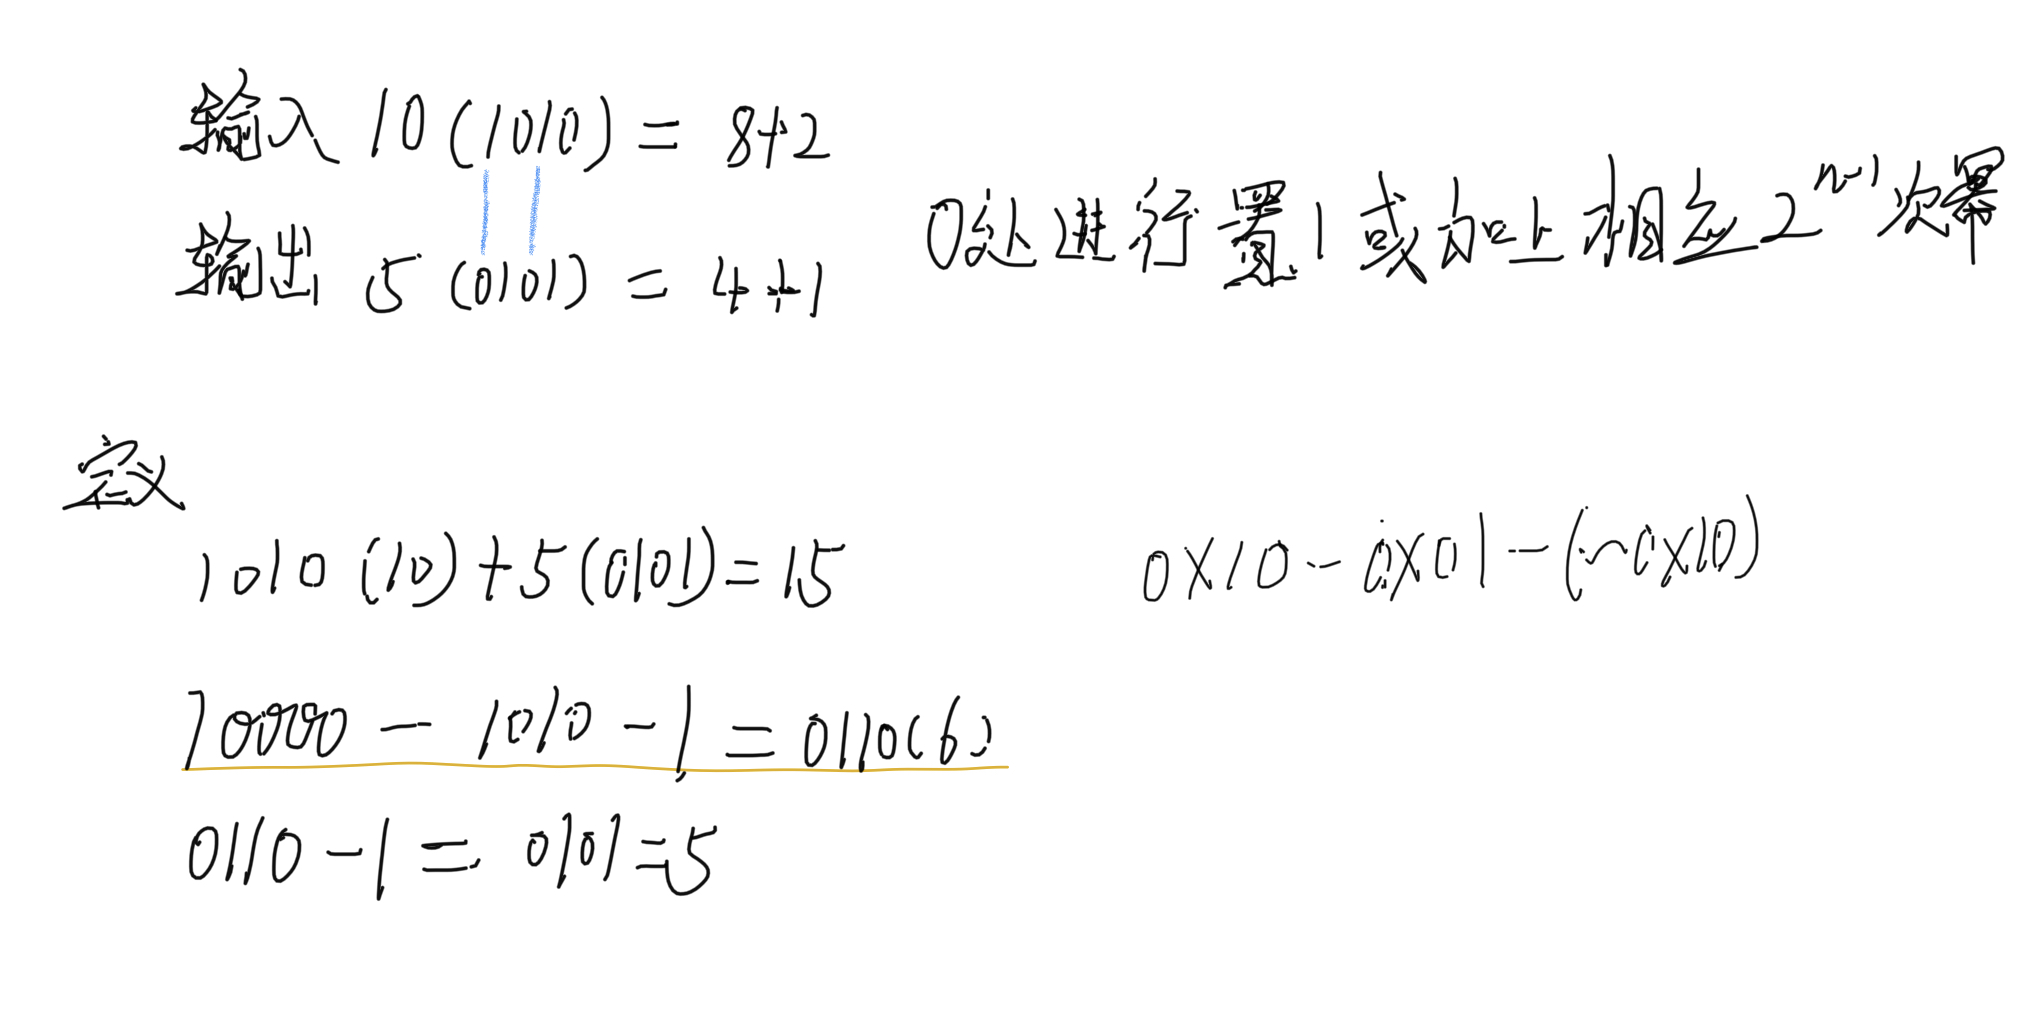 输入 10(1010) = 8+2
输出 5 (0101) = 4+1
0处进行置1或加上相应2^{n-1}次幂
定义
1010 (10) + 5 (0101) = 15
10000 - 1010 - 1 = 0110(6)
0110 - 1 = 0101 = 5
0x10 - 0x01 - (~0x10)